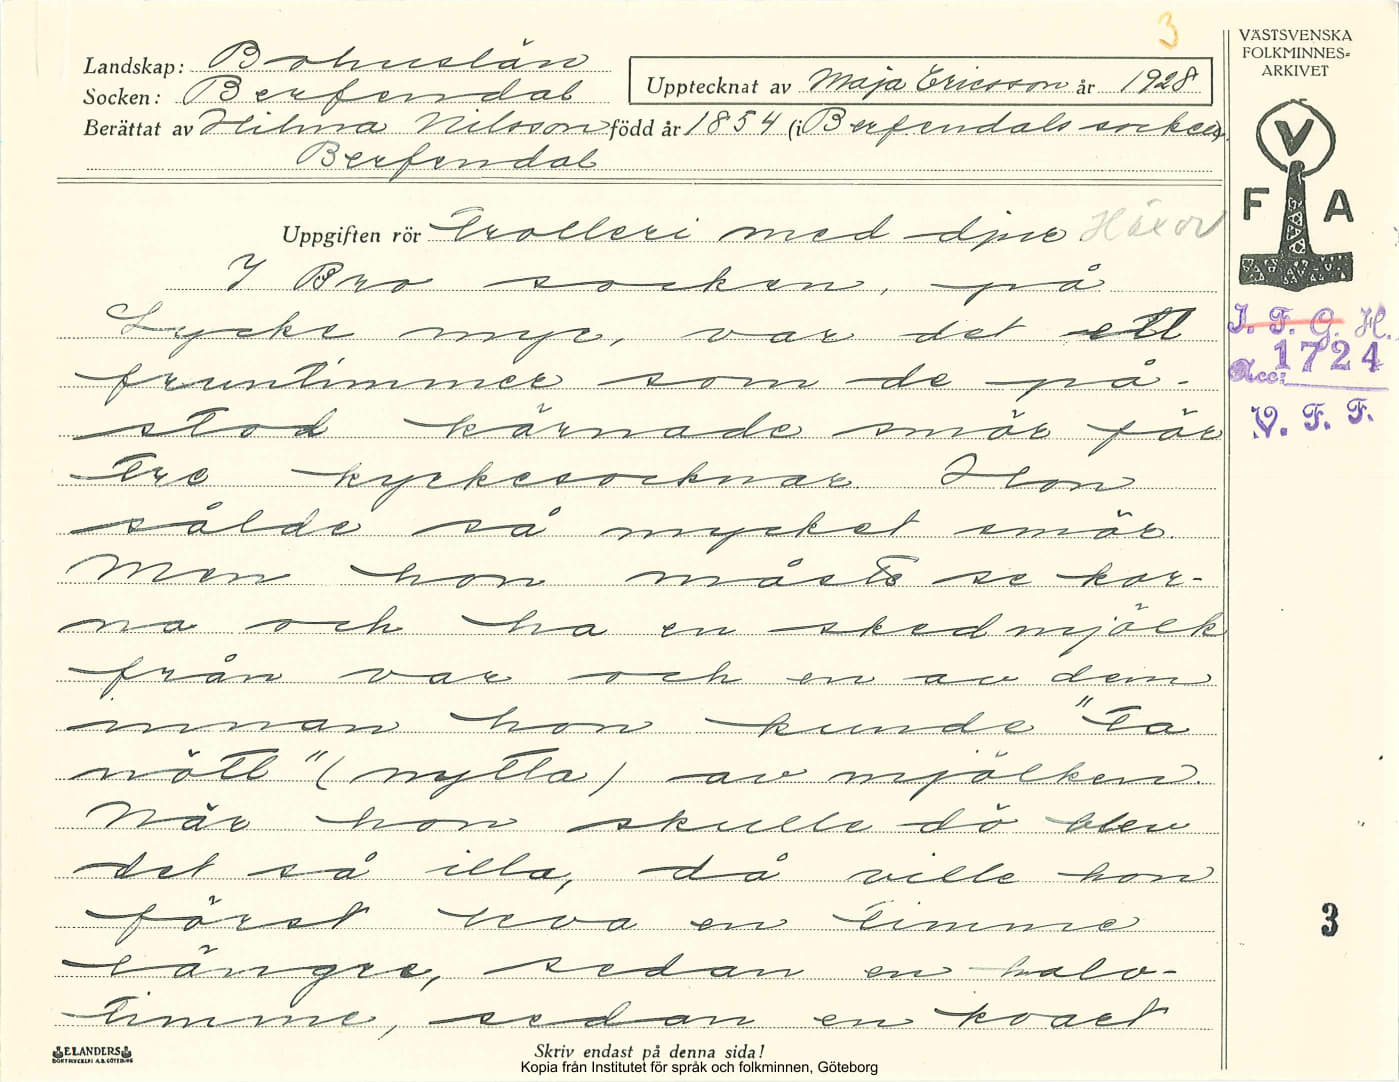 3
Landskap: Bohuslän
Socken: Berfendal
Upptecknat av Maja Ericsson år 1928
Berättat av Hilma Nilsson född år 1854 (i Berfendals socken).
Berfendal
Uppgiften rör Trolleri med djur Häxor
I Bro socken, på
Lycke myr, var det ett
fruntimmer som de på-
stod kärnade smör för
tre kyrkesocknar. Hon
sålde så mycket smör.
Men hon måste se kor-
na och ha en sked mjölk
från var och en av dem
innan hon kunde "ta
nött" (nytta) av mjölken.
När hon skulle dö blev
det så illa, då ville hon
först leva en timme
längre, sedan en halv-
timme, sedan en kvart
Skriv endast på denna sida!
ELANDERS
BOKTRYCKERI A.B. GÖTEBORG
Kopia från Institutet för språk och folkminnen, Göteborg
VÄSTSVENSKA
FOLKMINNES=
ARKIVET
V
F A
I. F. G. H.
Acc: 1724
V. F. F.
3